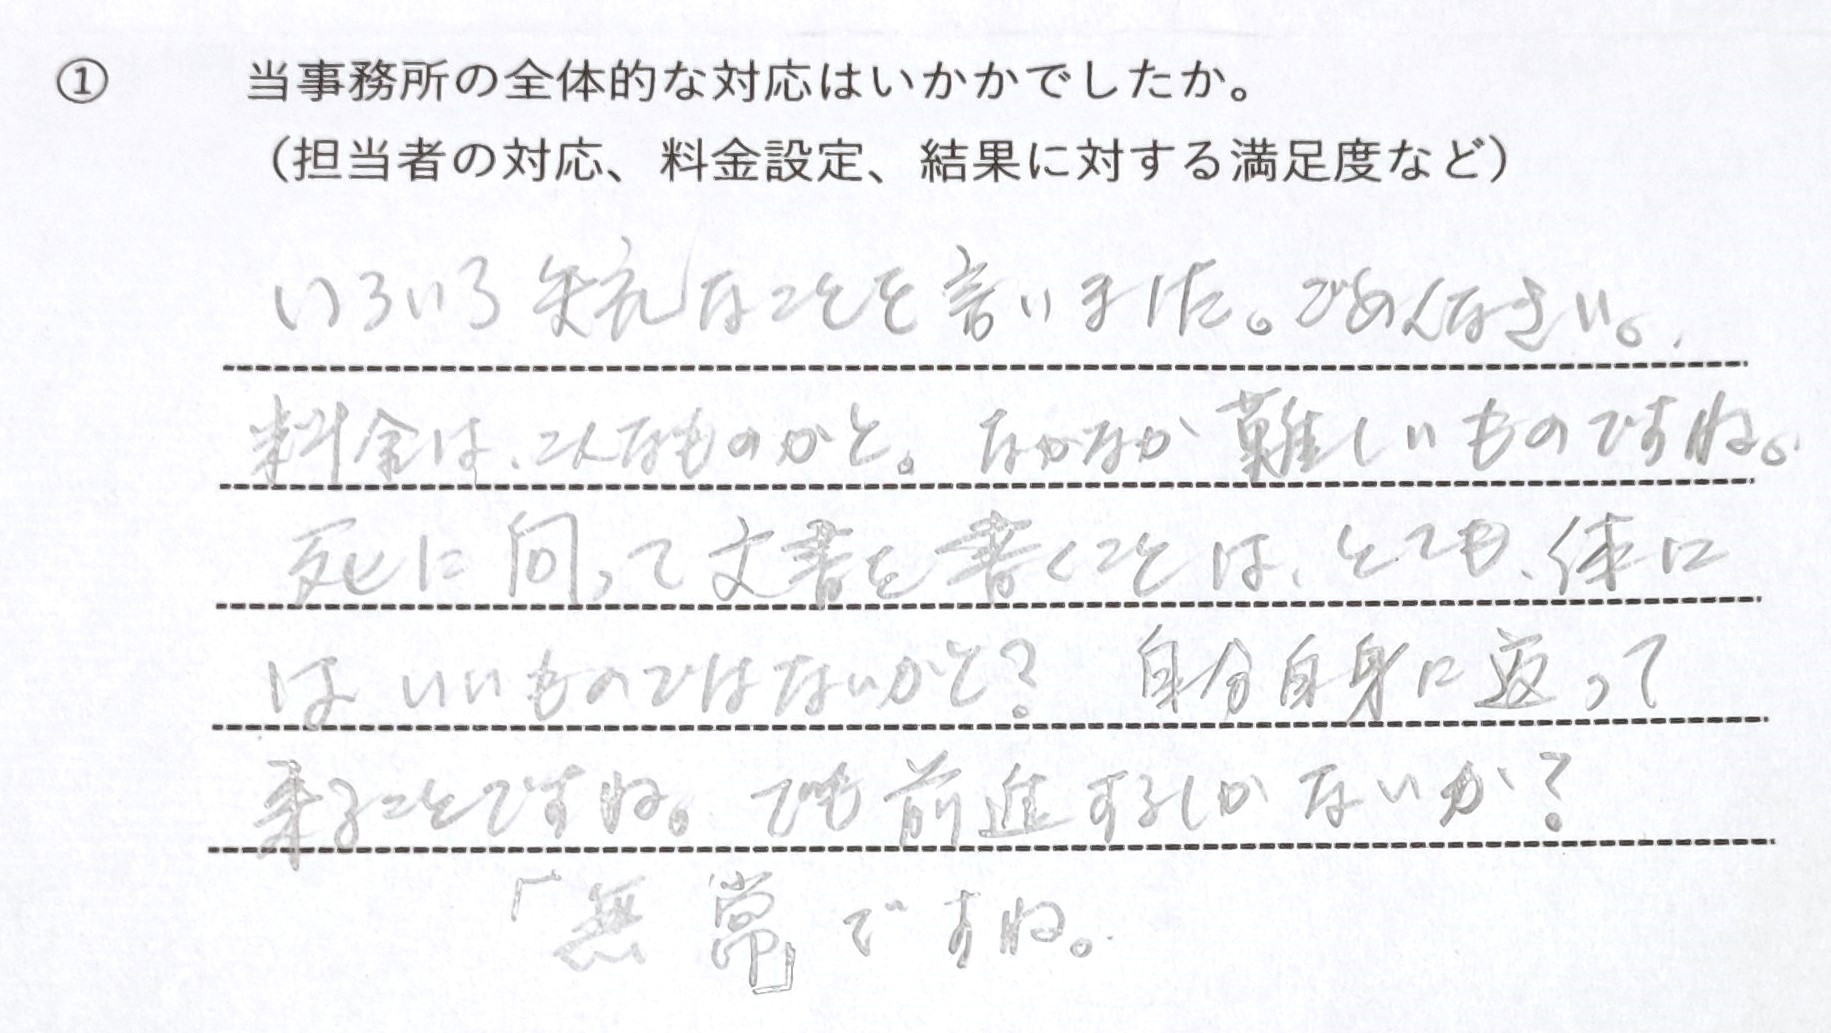 ① 当事務所の全体的な対応はいかかでしたか。
（担当者の対応、料金設定、結果に対する満足度など）
いろいろ失礼なことを言いました。ごめんなさい。
料金は、こんなものかと。なかなか難しいものですね。
死に向って文書を書くことは、とても、体に
はいいものではないかと？ 自分自身に返って
来ることですね。でも前進するしかないか？
「無常」ですね。